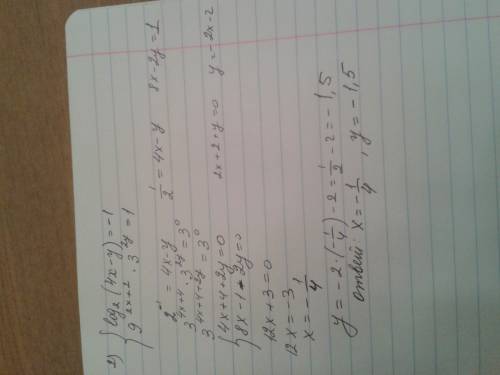 2) { log₂(4x-y)=-1
{ 9^(2x+2) · 3^(2y) = 1
2^(-1) = 4x-y   1/2 = 4x-y   8x-2y=1
3^(4x+4) · 3^(2y) = 3^0
3^(4x+4+2y) = 3^0
{ 4x+4+2y=0   2x+2+y=0   y=-2x-2
{ 8x-1-2y=0
12x+3=0
12x=-3
x=-1/4
y=-2·(-1/4)-2=1/2-2=-1,5
ответ: x=-1/4, y=-1,5